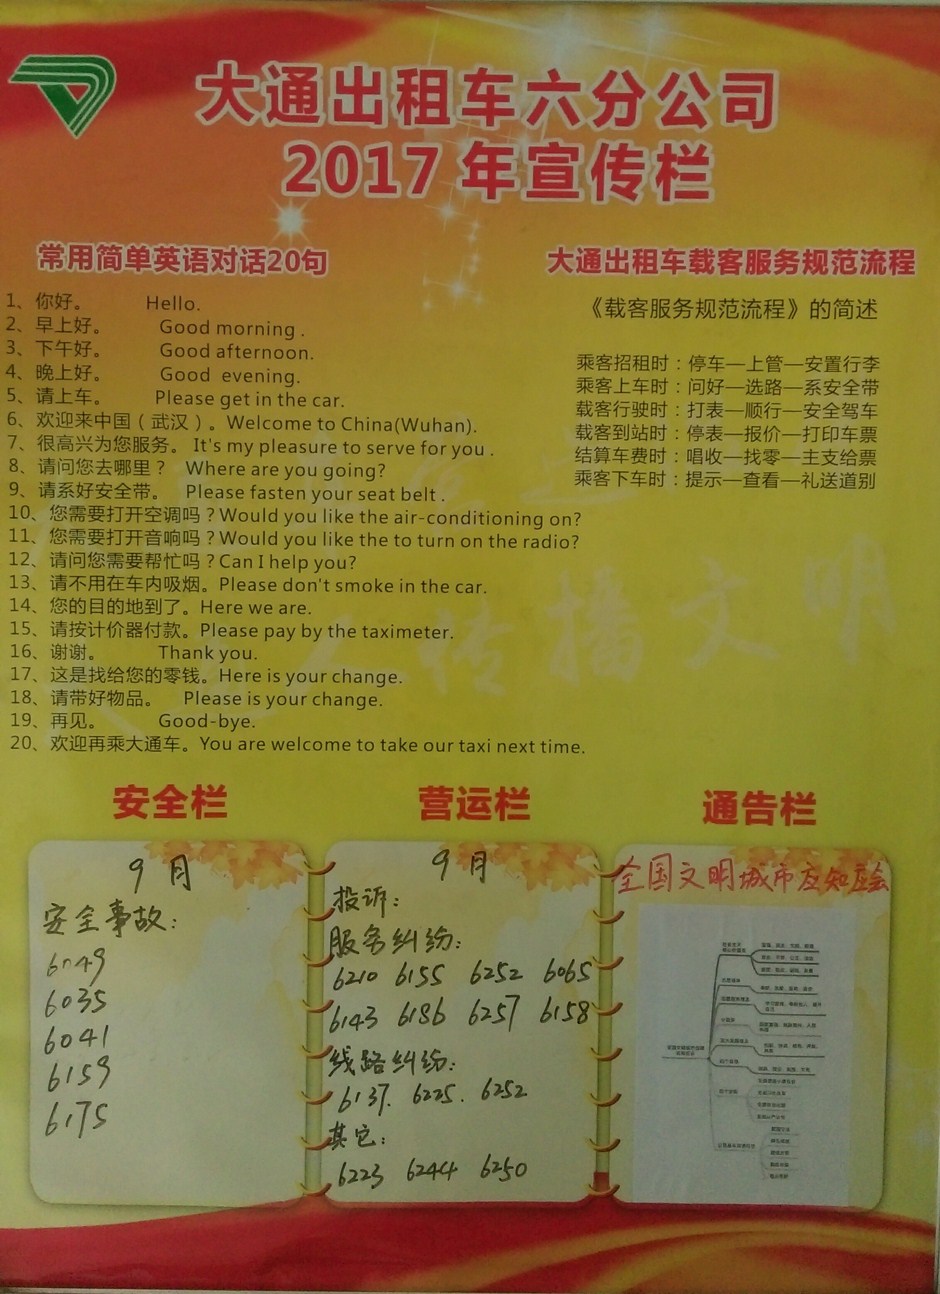 大通出租车六分公司
2017年宣传栏
常用简单英语对话20句
1、你好。 Hello.
2、早上好。 Good morning .
3、下午好。 Good afternoon.
4、晚上好。 Good evening.
5、请上车。 Please get in the car.
6、欢迎来中国（武汉）。Welcome to China(Wuhan).
7、很高兴为您服务。 It's my pleasure to serve for you .
8、请问您去哪里？ Where are you going?
9、请系好安全带。 Please fasten your seat belt .
10、您需要打开空调吗？Would you like the air-conditioning on?
11、您需要打开音响吗？Would you like the to turn on the radio?
12、请问您需要帮忙吗？Can I help you?
13、请不用在车内吸烟。Please don't smoke in the car.
14、您的目的地到了。Here we are.
15、请按计价器付款。Please pay by the taximeter.
16、谢谢。 Thank you.
17、这是找给您的零钱。Here is your change.
18、请带好物品。 Please is your change.
19、再见。 Good-bye.
20、欢迎再乘大通车。You are welcome to take our taxi next time.
大通出租车载客服务规范流程
《载客服务规范流程》的简述
乘客招租时：停车—上管—安置行李
乘客上车时：问好—选路—系安全带
载客行驶时：打表—顺行—安全驾车
载客到站时：停表—报价—打印车票
结算车费时：唱收—找零—主支给票
乘客下车时：提示—查看—礼送道别
人人传播文明
安全栏
9月
安全事故：
6049
6035
6041
6159
6175
营运栏
9月
投诉：
服务纠纷：
6210 6155 6252 6065
6143 6186 6257 6158
线路纠纷：
6137. 6225. 6252
其它：
6223 6244 6250
通告栏
全国文明城市应知应会